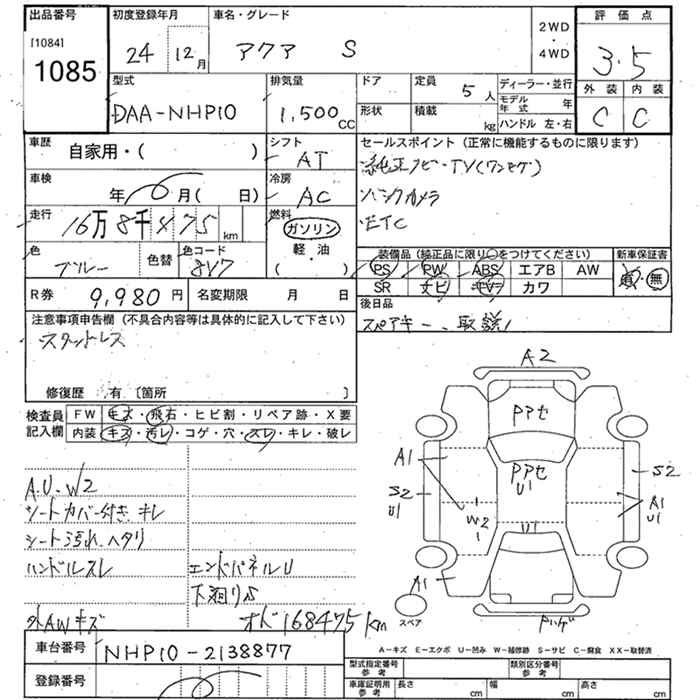 出品番号
[1084]
1085
初度登録年月
24 12月
車名・グレード
アクア S
2WD
・
4WD
評価点
3.5
外装 内装
C C
型式
DAA-NHP10
排気量
1,500cc
ドア
形状
定員 5人
積載 kg
ディーラー・並行
モデル年式 年
ハンドル 左・右
車歴
自家用・( )
シフト
AT
車検
年 月( 日)
冷房
AC
走行
16万8千475km
燃料
ガソリン
軽・油
( )
色
ブルー
色替
色コード
8V7
セールスポイント(正常に機能するものに限ります)
純正ナビ・TV(ワンセグ)
バックカメラ
ETC
装備品(純正品に限り○をつけてください)
新車保証書
PS PW ABS エアB AW
SR ナビ TV カワ
有・無
後日品
スペアキー、取説
R券 9,980円
名変期限 月 日
注意事項申告欄(不具合内容等は具体的に記入して下さい)
スタッドレス
修復歴 有〔箇所 〕
検査員記入欄
FW キズ・飛石・ヒビ割・リペア跡・X要
内装 キズ・汚レ・コゲ・穴・スレ・キレ・破レ
A.U.W2
シートカバー付き、キレ
シート汚れ、ヘタリ
ハンドルスレ
エンドパネルU
下廻りS
外AWキズ
オド168475km
A2
Pアセ
PアセU1
A1
S2
U1
W2
U1
S2
A1
U1
A1
Pハゲ
スペア
A-キズ E-エクボ U-凹み W-補修跡 S-サビ C-腐食 XX-取替済
車台番号
NHP10-2138877
登録番号
型式指定番号
参考
類別区分番号
参考
車庫証明用
参考
長さ cm
幅 cm
高さ cm